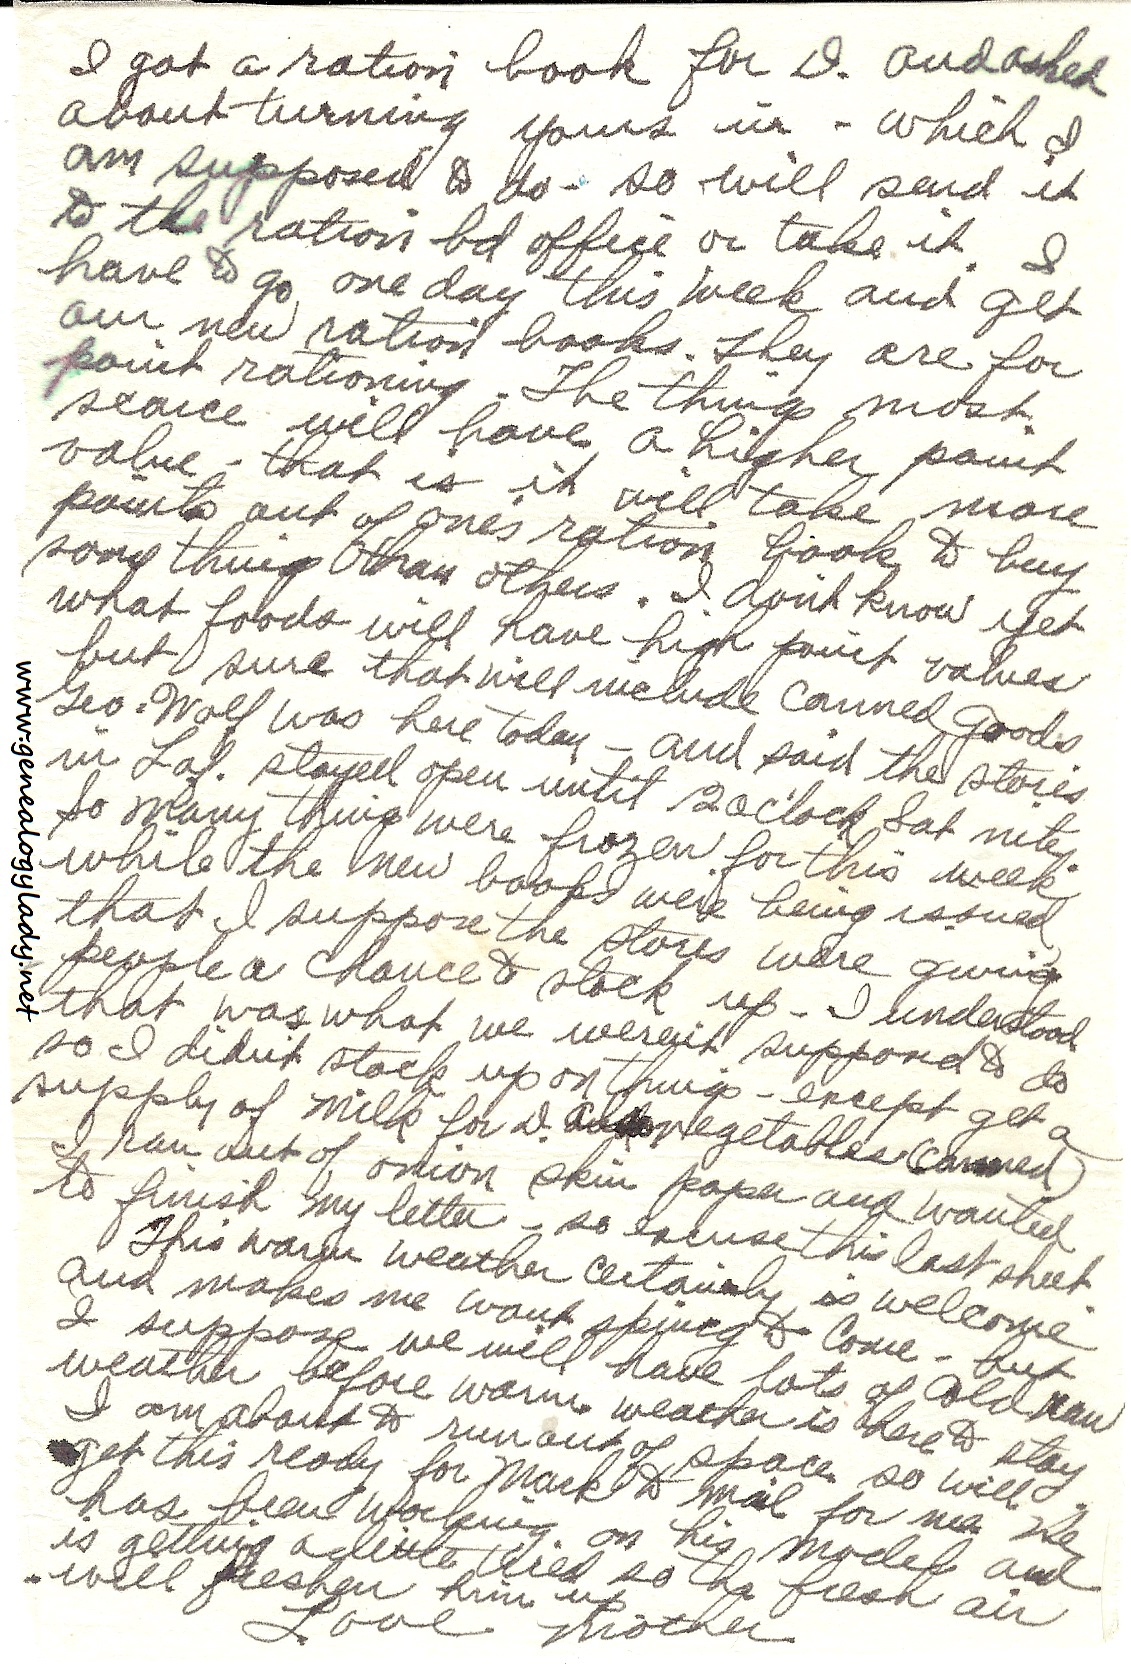 I got a ration book for D. and asked
about turning yours in - which I
am supposed to do - so will send it
to the ration bd office or take it. I
have to go one day this week and get
our new ration books. They are for
point rationing. The things most
scarce will have a higher point
value - that is it will take more
points out of one's ration book to buy
some things than others. I don't know yet
what foods will have high point values
but sure that will include canned goods
Geo. Wolf was here today - and said the stores
in Laf. stayed open until 12 o'clock Sat nite.
So many thing were frozen for this week
while the new books were being issued
that I suppose the stores were giving
people a chance to stock up - I understood
that was what we weren't supposed to do
so I didn't stock up on things - except get a
supply of milk for D. and vegetables (canned)
I ran out of onion skin paper and wanted
to finish my letter - so excuse this last sheet
This warm weather certainly is welcome
and makes me want spring to come - but
I suppose we will have lots of cold raw
weather before warm weather is here to stay
I am about to run out of space so will
get this ready for Mark to mail for me He
has been working on his model and
is getting a little tired so the fresh air
will freshen him up
Love Mother
www.genealogylady.net